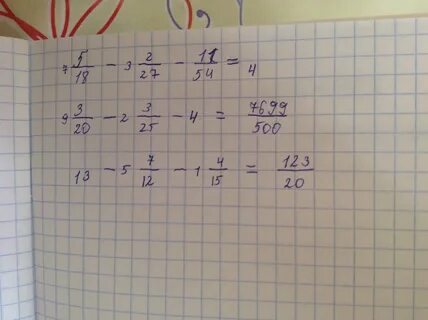 7 5/18 - 3 2/27 - 11/54 = 4
9 3/20 - 2 3/25 - 4 = 7699/500
13 - 5 7/12 - 1 4/15 = 123/20